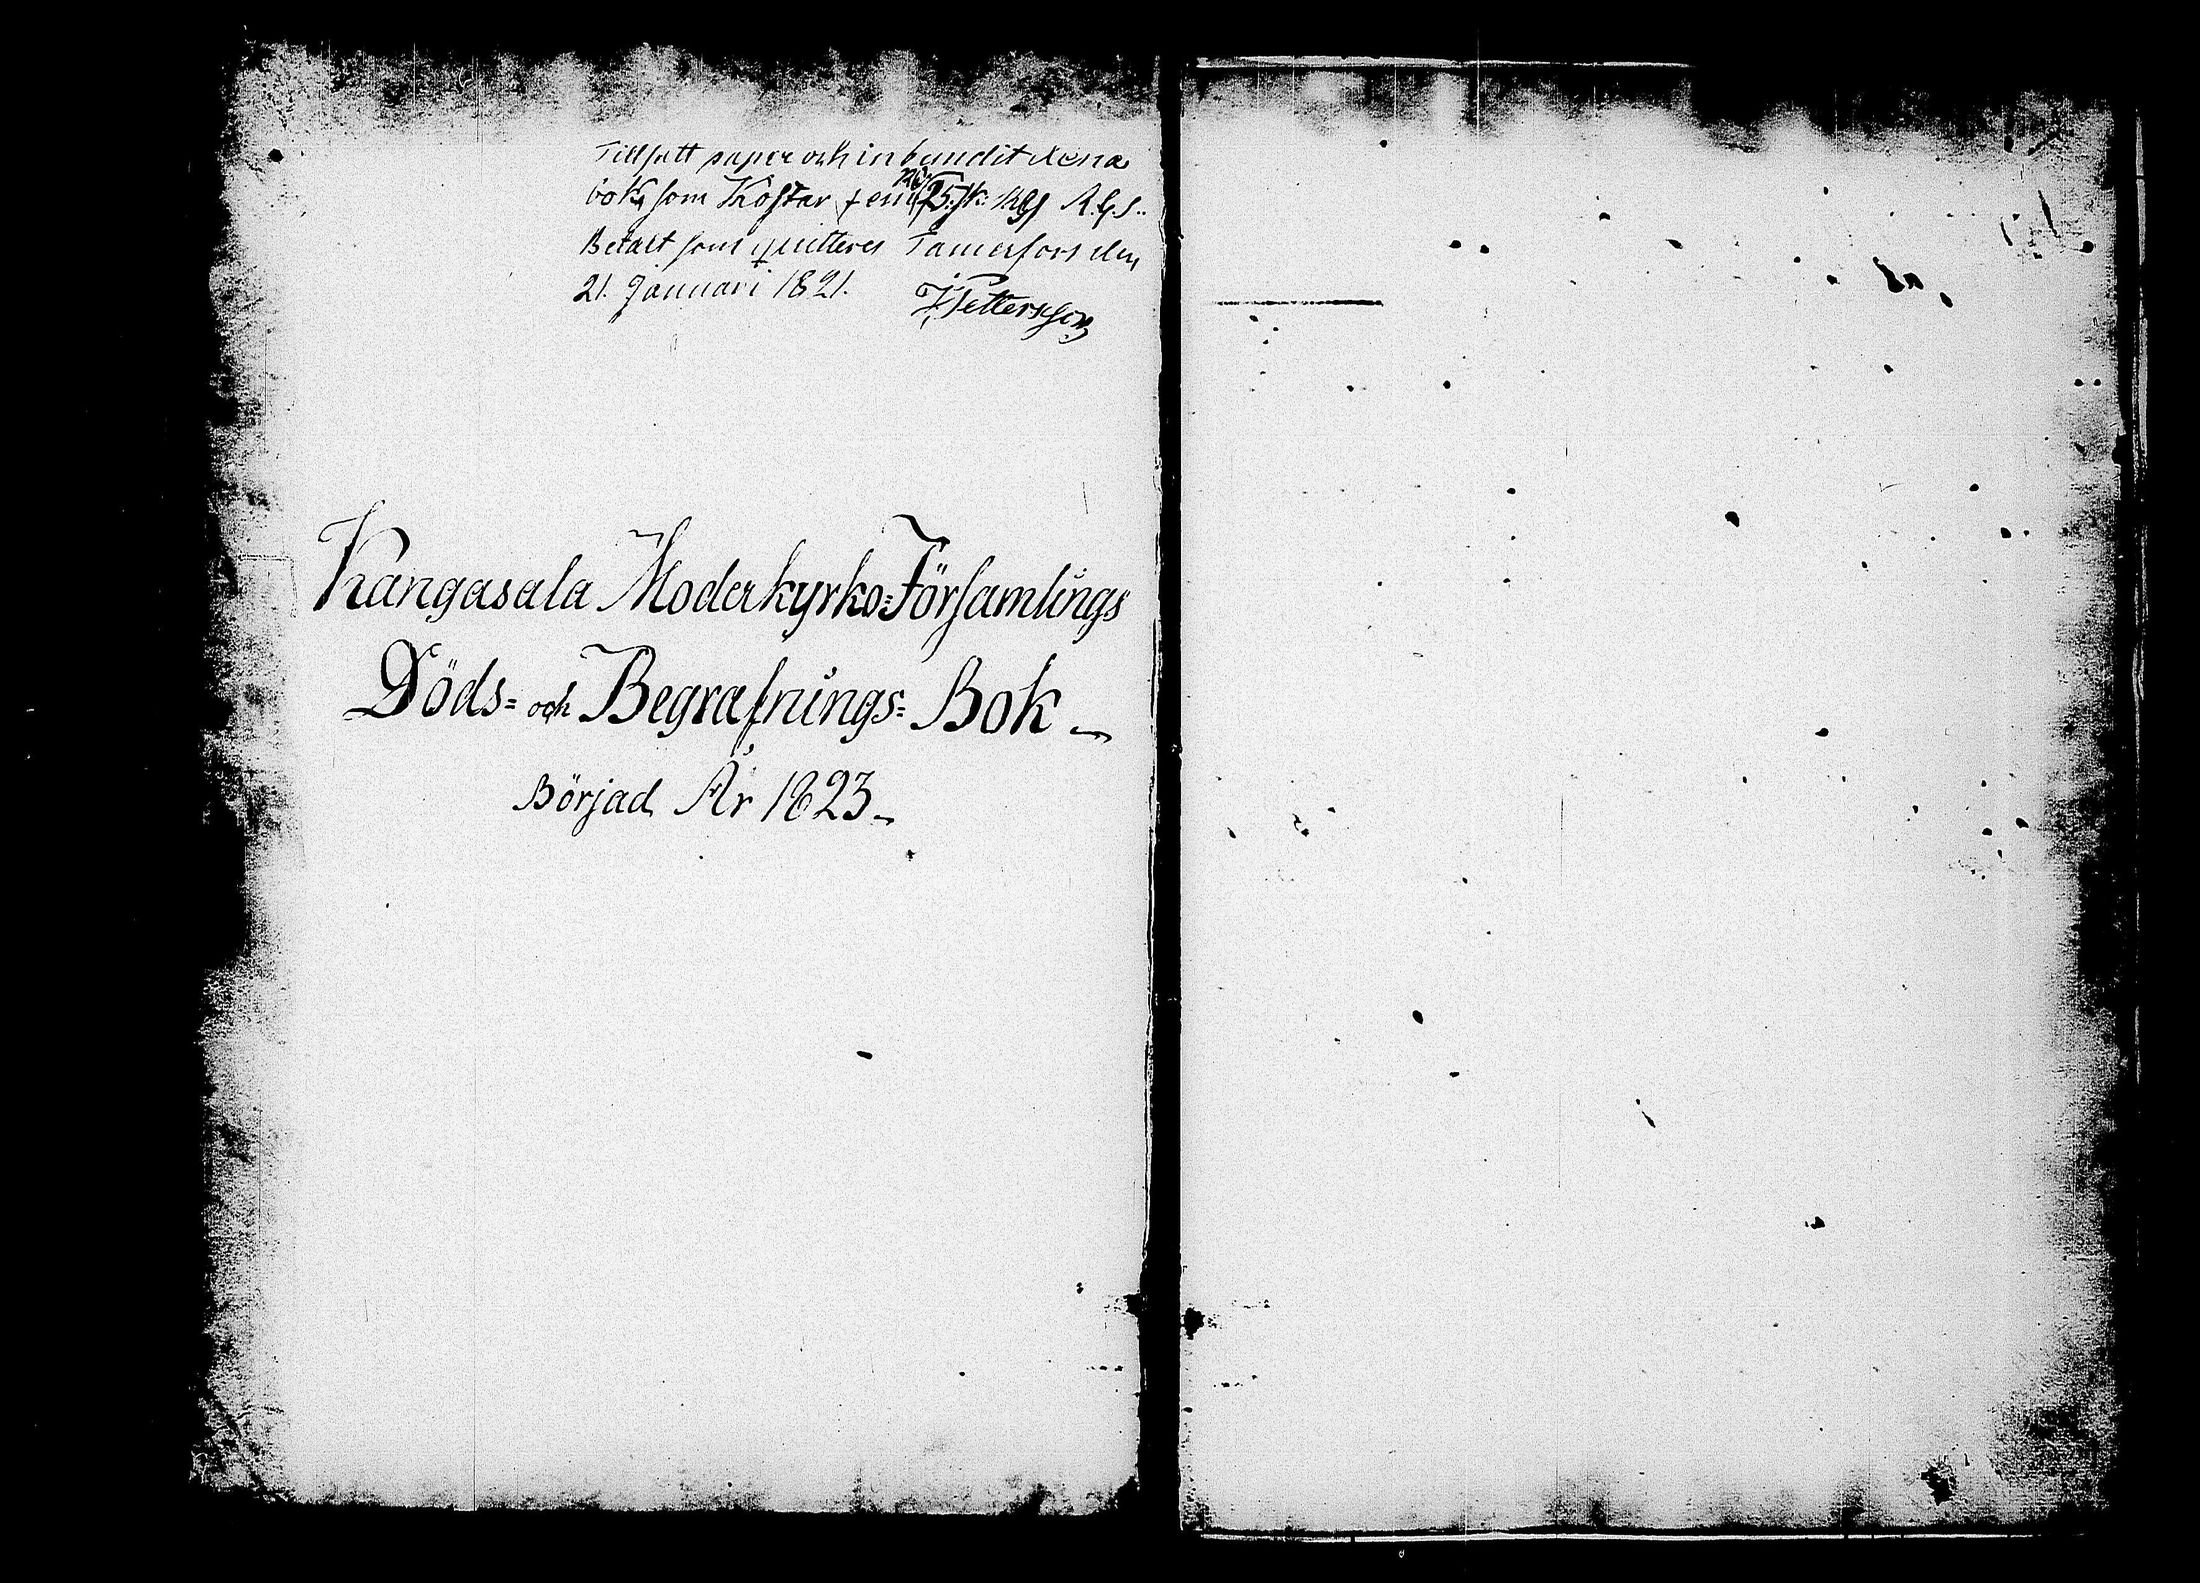 Tillsatt paper och inbundit denna
bok som Kostar fem 25 sk: Rgs R.G.S..
Betalt som qvitteres Tamerfors den
21. Januari 1821.
J. Pettersson
Kangasala Moderkyrko=Församlings
Döds= och Begrafnings=Bok
Börjad År 1823